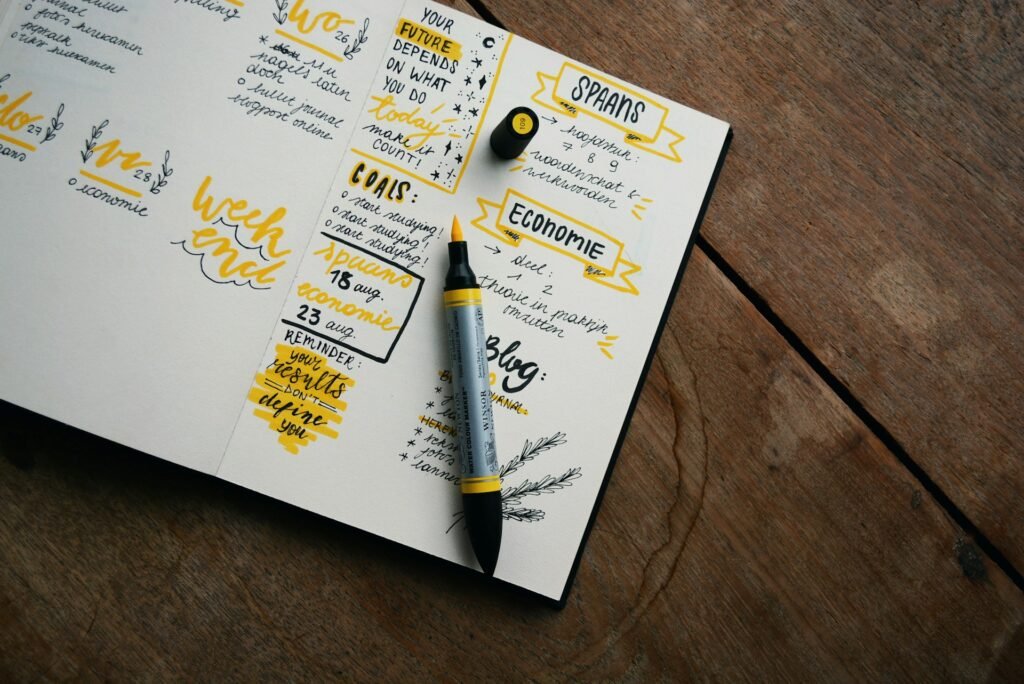 bullet
journal
o fotos herexamen
o herexamen
Wo
26
nagels laten
doen
o bullet journal
blogpost online
do
27
vr
28
o economie
week
end
YOUR
FUTURE
DEPENDS
ON WHAT
YOU DO
today
make it
COUNT!
GOALS:
o start studying!
o start studying!
o start studying!
Spaans
18 aug.
economie
23 aug.
REMINDER:
your
results
DON'T
define
you
109
SPAANS
→ hoofdstuk:
7 8 9
woordenschat &
werkwoorden
ECONOMIE
→ deel:
1 2
theorie in praktijk
omzetten
Blog:
WATER COLOUR MARKER
WINSOR